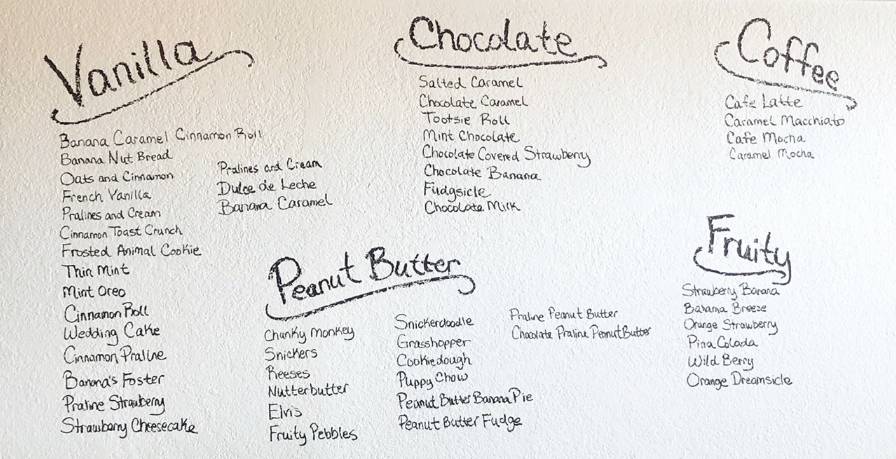 Vanilla
Banana Caramel Cinnamon Roll
Banana Nut Bread
Oats and Cinnamon
French Vanilla
Pralines and Cream
Cinnamon Toast Crunch
Frosted Animal Cookie
Thin Mint
Mint Oreo
Cinnamon Roll
Wedding Cake
Cinnamon Praline
Banana's Foster
Praline Strawberry
Strawberry Cheesecake
Pralines and Cream
Dulce de Leche
Banana Caramel
Chocolate
Salted Caramel
Chocolate Caramel
Tootsie Roll
Mint Chocolate
Chocolate Covered Strawberry
Chocolate Banana
Fudgsicle
Chocolate Milk
Coffee
Cafe Latte
Caramel Macchiato
Cafe Mocha
Caramel Mocha
Peanut Butter
Chunky Monkey
Snickers
Reeses
Nutterbutter
Elvis
Fruity Pebbles
Snickerdoodle
Grasshopper
Cookiedough
Puppy Chow
Peanut Butter Banana Pie
Peanut Butter Fudge
Praline Peanut Butter
Chocolate Praline Peanut Butter
Fruity
Strawberry Banana
Bahama Breeze
Orange Strawberry
Pina Colada
Wild Berry
Orange Dreamsicle